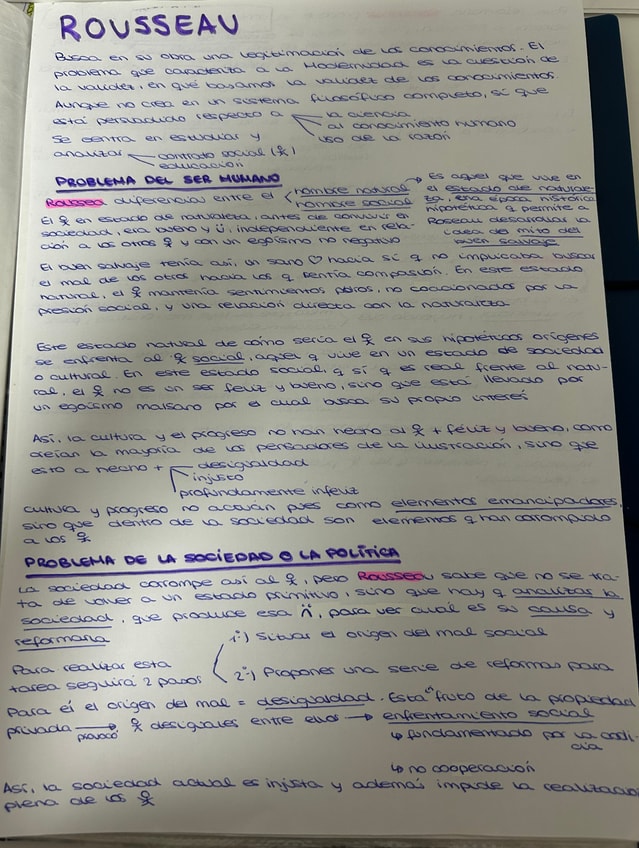 ROUSSEAU
Busca en su obra una legitimación de los conocimientos. El
problema que caracteriza a la Modernidad es la cuestión de
la validez, en qué basamos la validez de los conocimientos.
Aunque no crea en un sistema filosófico completo, sí que
está persuadido respecto a la ciencia
al conocimiento humano
uso de la razón
Se centra en estudiar y
analizar contrato social (☥)
educación
PROBLEMA DEL SER HUMANO
Rousseau diferencia entre el hombre natural
hombre social
→ Es aquel que vive en
el estado de naturale-
za, una época histórica
hipotética q permite a
Roseau desarrollar la
idea de mito del
buen salvaje
El ☥ en estado de naturaleza, antes de convivir en
sociedad, era bueno y ü, independiente en rela-
ción a los otros ☥ y con un egoísmo no negativo
El buen salvaje tenía así, un sano ♡ hacia sí q no implicaba buscar
el mal de los otros hacia los q sentía compasión. En este estado
natural, el ☥ mantenía sentimientos puros, no coaccionados por la
presión social, y una relación directa con la naturaleza
Este estado natural de cómo sería el ☥ en sus hipotéticos orígenes
se enfrenta al ☥ social, aquel q vive en un estado de sociedad
o cultural. En este estado social, q sí q es real frente al natu-
ral, el ☥ no es un ser feliz y bueno, sino que está llevado por
un egoísmo malsano por el cual busca su propio interés
Así, la cultura y el progreso no han hecho al ☥ + féliz y bueno, como
creían la mayoría de los pensadores de la ilustración, sino que
esto a hecho + desigualdad
injusto
profundamente infeliz
cultura y progreso no actúan pues como elementos emancipadores,
sino que dentro de la sociedad son elementos q han corrompido
a los ☥
PROBLEMA DE LA SOCIEDAD O LA POLÍTICA
La sociedad corrompe así al ☥, pero Rousseau sabe que no se tra-
ta de volver a un estado primitivo, sino que hay q analizar la
sociedad, que produce esa ⍨, para ver cual es su causa y
reformarla
Para realizar esta
tarea seguirá 2 pasos
1º) Situar el origen del mal social
2º) Proponer una serie de reformas para
Para él el origen del mal = desigualdad. Esta " fruto de la propiedad
privada → provocó ☥ desiguales entre ellos → enfrentamiento social
↳ fundamentado por la codi-
cia
↳ no cooperación
Así, la sociedad actual es injusta y además impide la realización
plena de los ☥